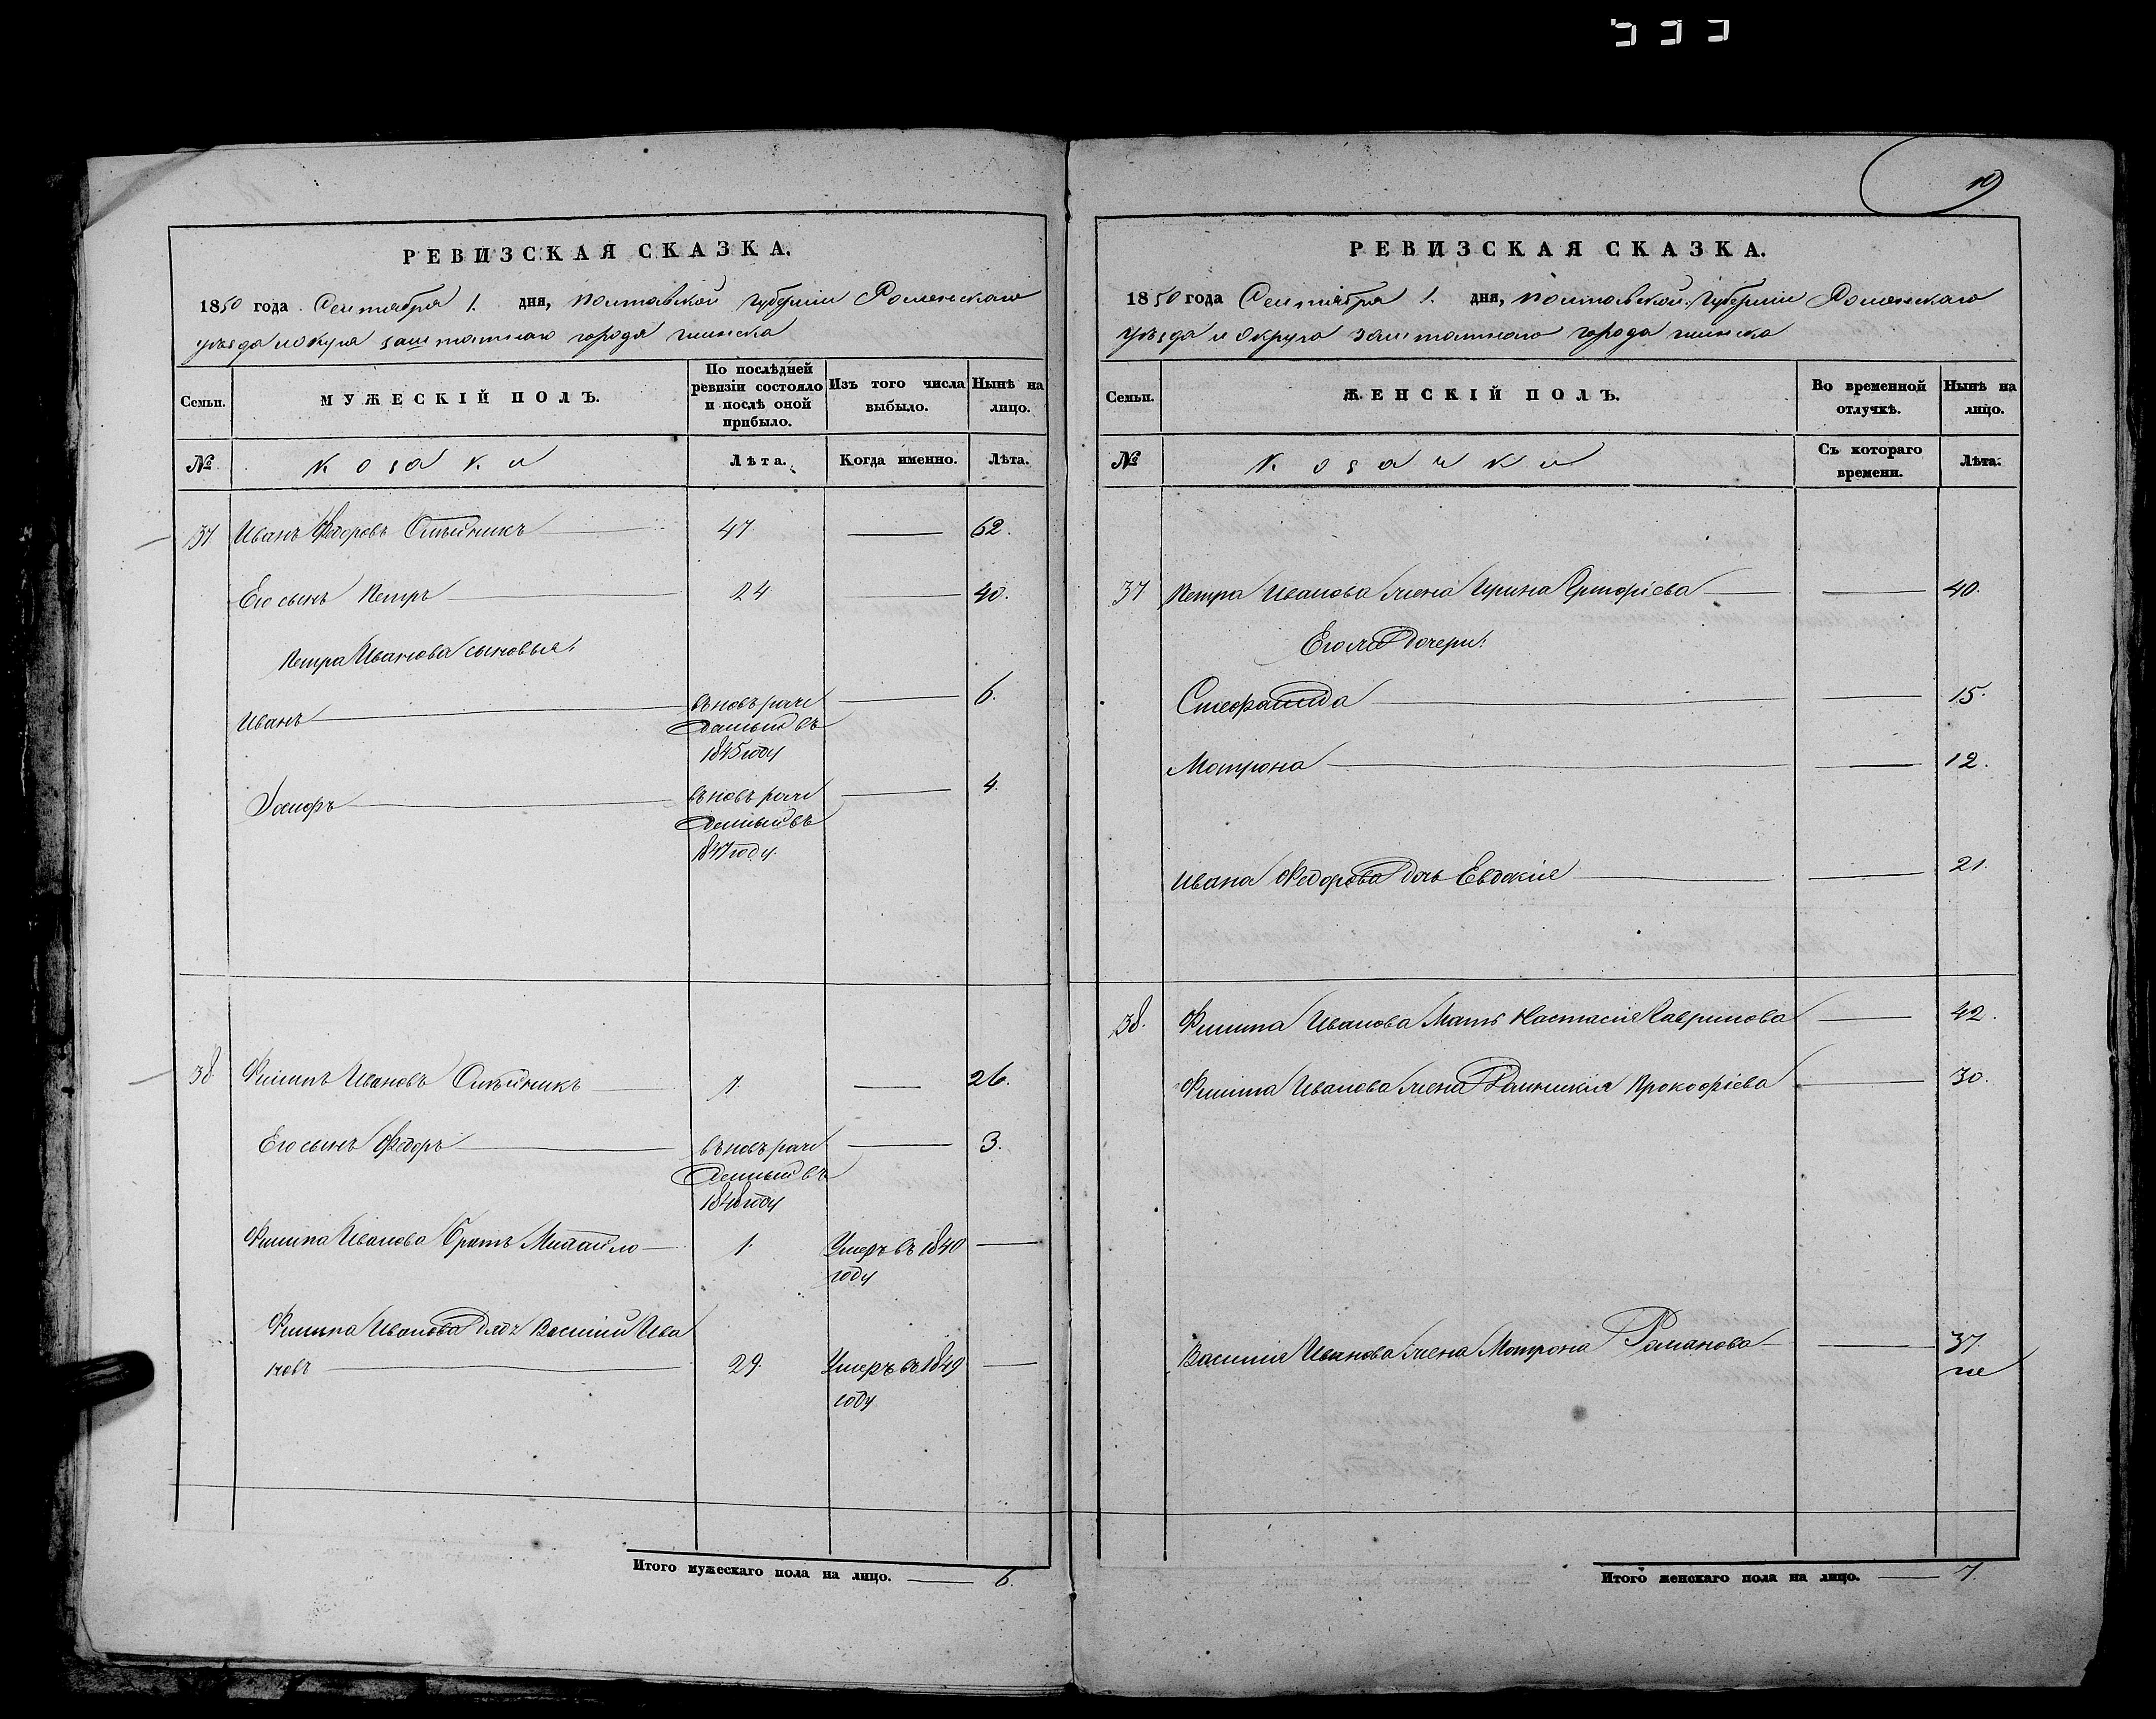 19
РЕВИЗСКАЯ СКАЗКА.
1850 года Сентября 1. дня, Полтавской губерніи Роменскаго
уѣзда и округа заштатнаго города Глинска
Семьи.
МУЖЕСКІЙ ПОЛЪ.
По послѣдней ревизіи состояло и послѣ оной прибыло.
Изъ того числа выбыло.
Нынѣ на лицо.
№
Козаки
Лѣта.
Когда именно.
Лѣта.
37 Иванъ Федоровъ 47 62.
Его сынъ Петръ 24 40.
Петра Иванова сыновья:
Иванъ вновь рож 6.
денный въ
1845 году
вновь рож 4.
денный въ
1847 году.
38 Филипъ Ивановъ 26.
Его сынъ Федоръ вновь рож 3.
денный въ
1848 году
Филипа Иванова братъ Михайло 1. Умеръ въ 1840
году
Филипа Иванова дядя Василий Ива
новъ 29. Умеръ въ 1849
году
Итого мужескаго пола на лицо. 6.
РЕВИЗСКАЯ СКАЗКА.
1850 года Сентября 1. дня, Полтавской губерніи Роменскаго
уѣзда и округа заштатнаго города Глинска
Семьи.
ЖЕНСКІЙ ПОЛЪ.
Во временной отлучкѣ.
Нынѣ на лицо.
№
Козачки
Съ котораго времени.
Лѣта.
37 Петра Иванова жена Ирина Григоріева 40.
Его же дочери:
Стефанида 15.
Мотрона 12.
Ивана Федорова дочь Евдокія 21.
38. Филипа Иванова мать Настасія Гаврилова 42.
Филипа Иванова жена Прокофіева 30.
Василія Иванова жена Мотрона Романова 37.
Итого женскаго пола на лицо. 7.